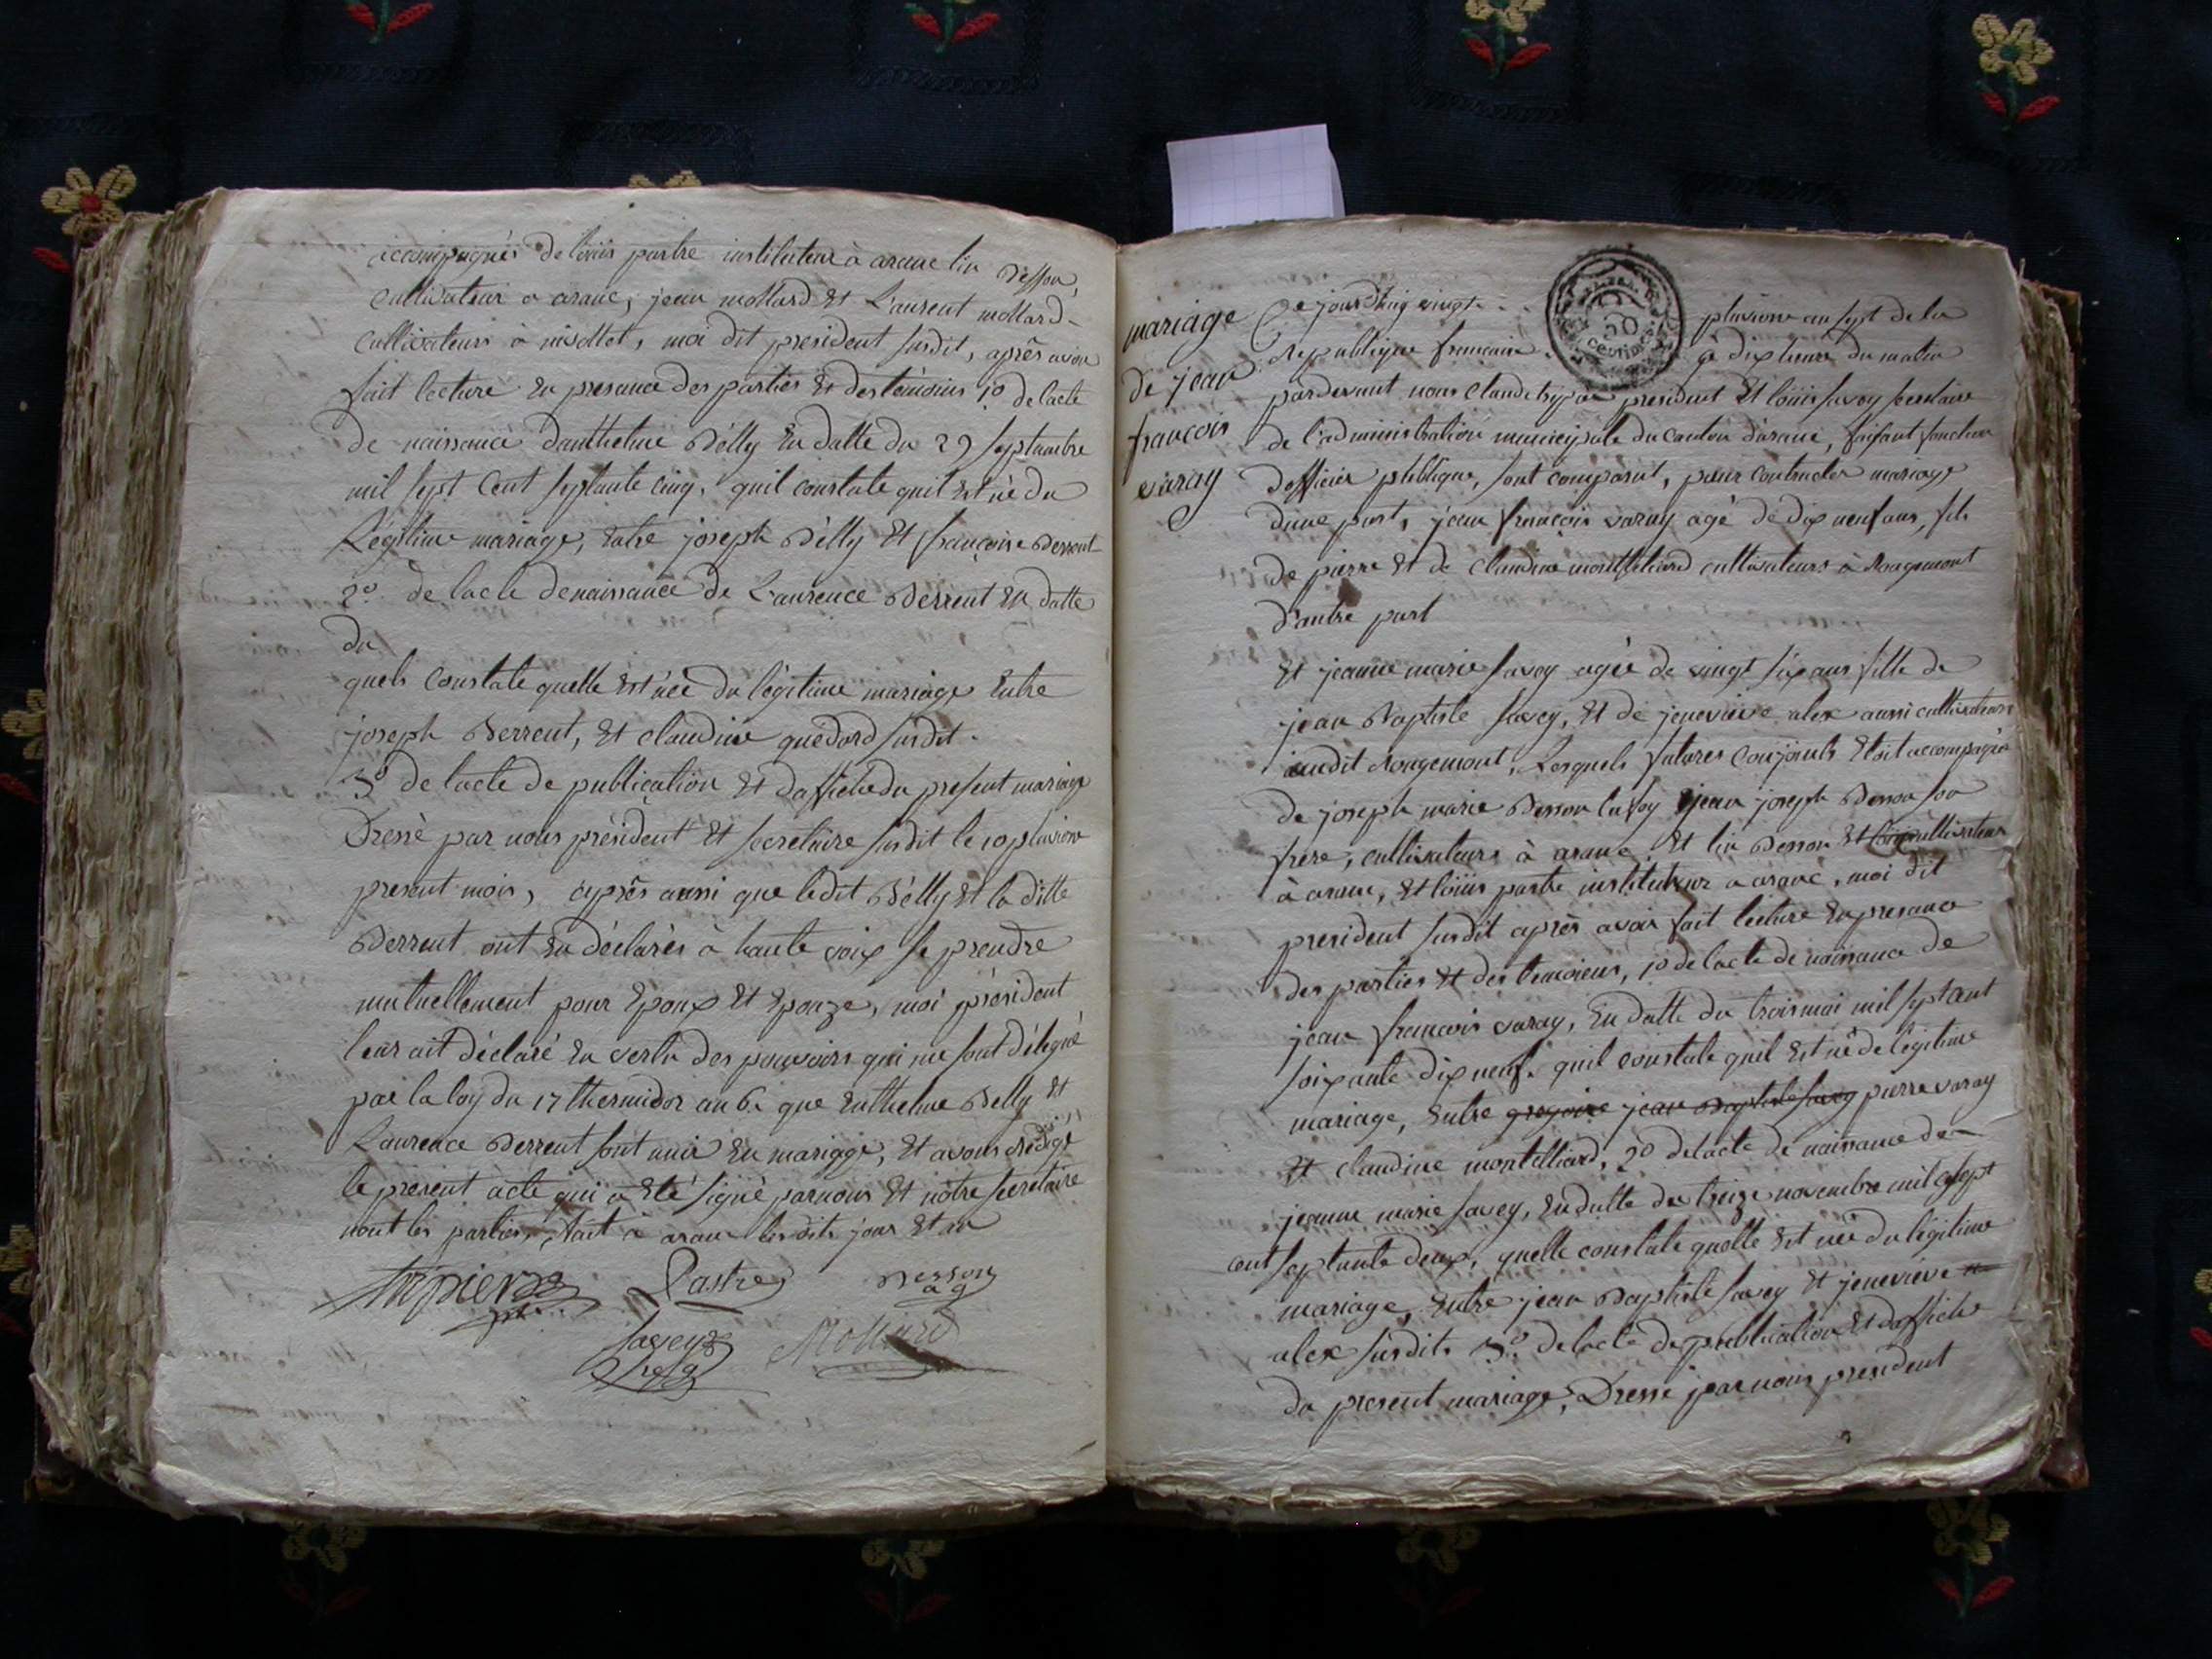 accompagnés de loüis pastre instituteur à aranc lin Besson,
cultivateur a aranc, jean mollard Et Laurent mollard
cultivateurs à nivollet, moi dit president susdit, après avoir
fait lecture En presance des parties Et des temoins 1º de lacte
de naissance danthelme Bélly En datte du 29 septambre
mil sept Cent septante cinq, quil constate quil Est né du
Légitime mariage, Entre joseph Bélly Et françoise Berrent
2º. de lacte de naissance de Laurence Berrent En datte
du
quels Constate quelle Est née du légitime mariage Entre
joseph Berrent, Et claudine quedord susdit.
3º de lacte de publication Et daffiche du present mariage
Dressé par nous président Et secretaire susdit le 10 pluviose
present mois, après aussi que ledit Bélly Et la ditte
Berrent ont En déclarés à haute voix se prendre
mutuellement pour Epoux Et Epouze, moi président
leur ait déclaré En vertu des pouvoirs qui me sont délégué
par la loy du 17 thermidor an 6. que Enthelme Belly Et
Laurence Berrent sont unis En mariage, Et avons rédigé
le présent acte qui a Eté signé par nous Et notre secretaire
nont les parties, fait à aranc les dits jour Et an
Pastre Besson
a g
Savey
Mollard
mariage
de jean
françois
varay
Ce jourdhuy vingt pluviose an sept de la
Republique francaise à dix heure du matin
50
centimes
pardevant nous Claude president Et loüis savey secretaire
de l'administration municipale du canton d'aranc, faisant fonction
dofficier publique, sont comparut, pour contracter mariage
dune part, jean françois varay agé de dix neuf ans, fils
de pierre Et de claudine montelliard cultivateurs à Rougemont
d'autre part
Et jeanne marie savey agée de vingt six ans fille de
jean Baptiste savey, Et de jenevieve alex aussi cultivateurs
audit Rougemont, Lesquels futures conjoints Etoit accompagnés
de joseph marie Besson jean joseph Besson son
frere, cultivateurs à aranc, Et lin Besson Et cultivateur
à aranc, Et loüis pastre instituteur a aranc, moi dit
president susdit après avoir fait lecture En presance
des parties Et des temoins, 1º de lacte de naissance de
jean francois varay, En datte du trois mai mil sept cent
soixante dix neuf. quil constate quil Est né de légitime
mariage, Entre gregoire jean Baptiste savey pierre varay
Et claudine montelliard, 2º de lacte de naissance de
jeanne marie savey, En datte du treize novembre mil sept
cent septante deux, quelle constate quelle Est née du légitime
mariage, Entre jean Baptiste savey Et jenevieve
alex susdit. 3º. de lacte de publication Et daffiche
du present mariage, Dressé par nous president